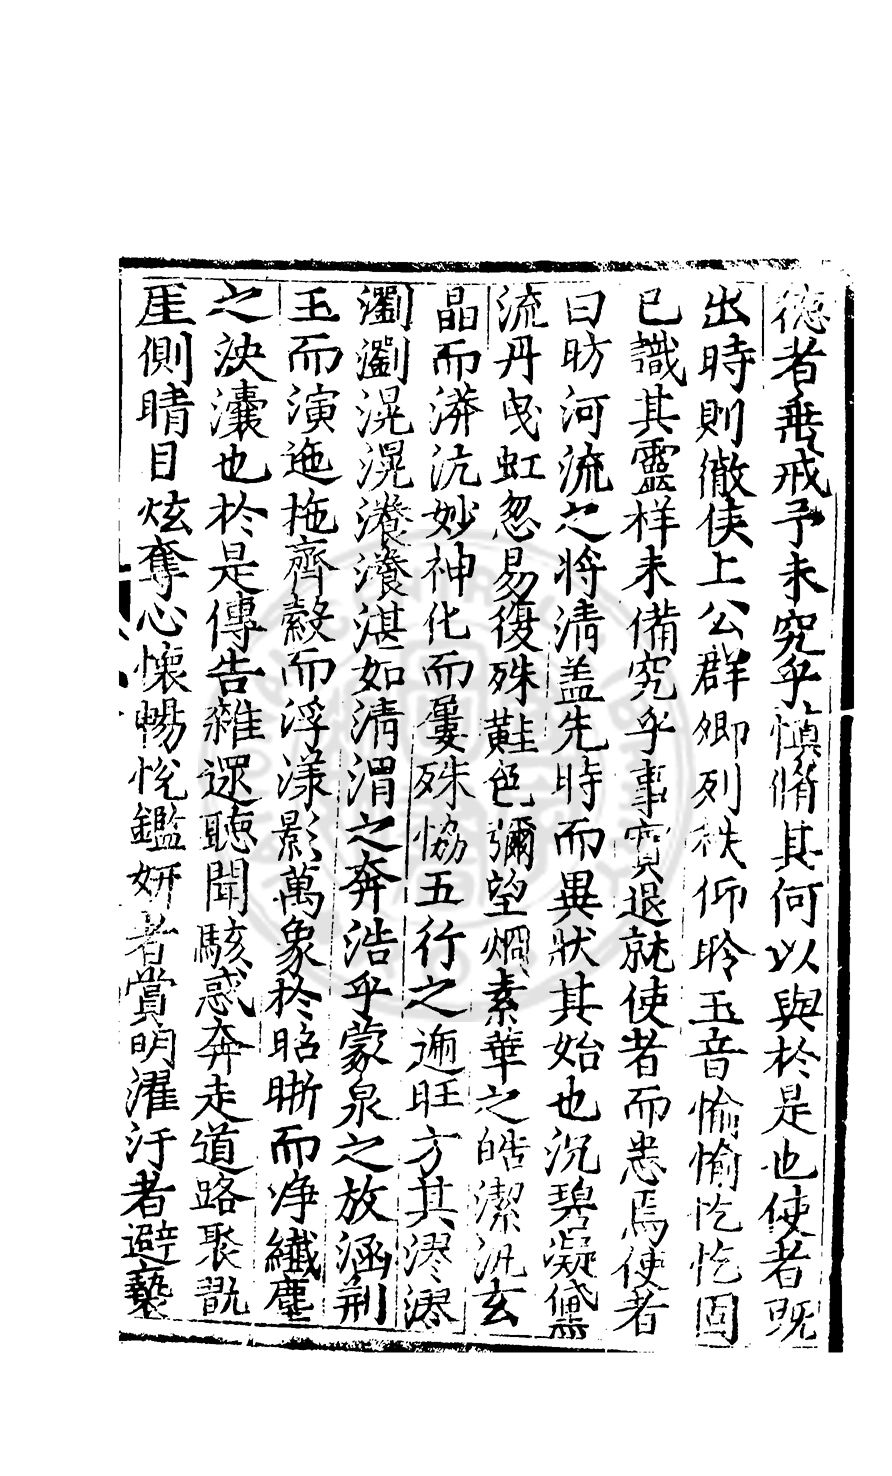 德者乗戒予未究乎愼脩其何以與於是也使者既
出時則徹侯上公群卿列秩仰聆玉音愉愉忔忔固
已識其靈样未備究乎事實退就使者而恙焉使者
曰昉河流之將清盖先時而異狀其始也沉碧凝黛
流丹曳虹忽易復殊黈色彌望烱素華之皓潔汎玄
晶而漭沆妙神化而屢殊恊五行之迊旺方其漻漻
瀏瀏滉滉瀁瀁湛如清渭之奔浩乎蒙泉之放涵荆
玉而演迤拖齊縠而浮漾影萬象於昭晣而净纎塵
之泱瀼也於是傳告雜遝聽聞駭惑奔走道路聚翫
厓側睛目炫奪心懷暢恱鑑妍者賞明濯汙者避䙝